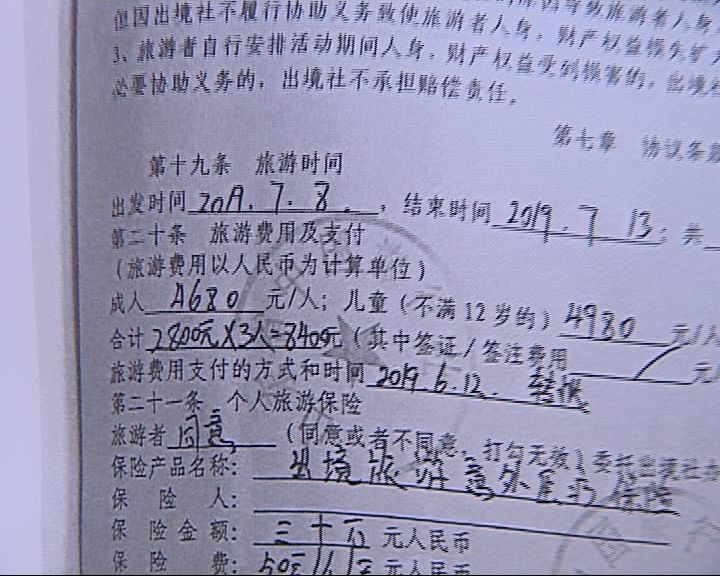 但因出境社不履行协助义务致使旅游者人身、财产权益损失扩大
3、旅游者自行安排活动期间人身、财产权益受到损害的，出境社
必要协助义务的，出境社不承担赔偿责任。
第七章 协议条款
第十九条 旅游时间
出发时间 2019.7.8.，结束时间 2019.7 13；共
第二十条 旅游费用及支付
（旅游费用以人民币为计算单位）
成人 元/人；儿童（不满12岁的）4980 元/人
合计 2800元X3人=8400元（其中签证/签注费用 元/
旅游费用支付的方式和时间 2019.6.12. 转账
第二十一条 个人旅游保险
旅游者 同意（同意或者不同意，打勾无效）委托出境社办
保险产品名称：出境旅游意外医疗保险
保险人：
保险金额：三十万 元人民币
保险费：50元/人 元人民币